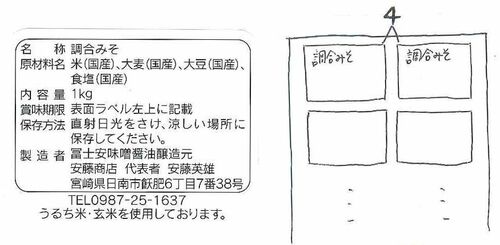 名　称 調合みそ
原材料名 米(国産)、大麦(国産)、大豆(国産)、
食塩(国産)
内容量 1kg
賞味期限 表面ラベル左上に記載
保存方法 直射日光をさけ、涼しい場所に
保存してください。
製造者 冨士安味噌醤油醸造元
安藤商店 代表者 安藤英雄
宮崎県日南市飫肥6丁目7番38号
TEL0987-25-1637
うるち米・玄米を使用しております。
4
調合みそ
調合みそ